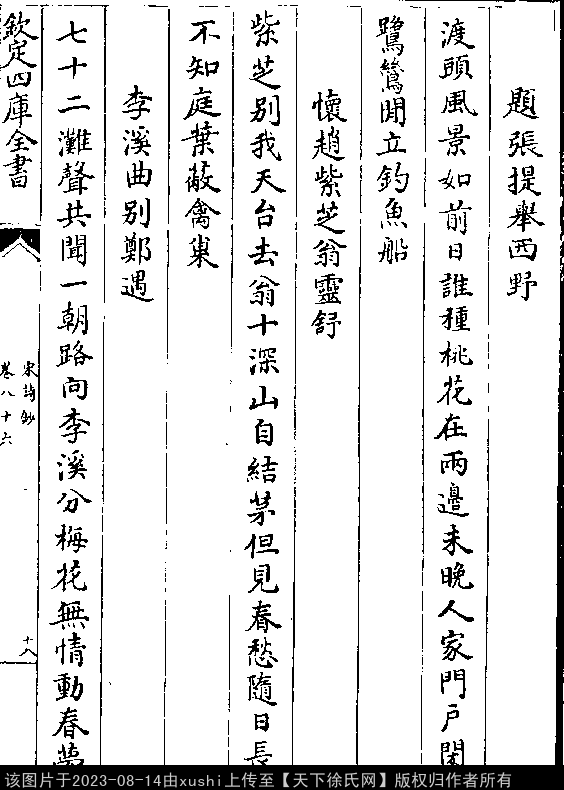 題張提舉西野
渡頭風景如前日誰種桃花在兩邊未晚人家門戶閉
鷺鷥閒立釣魚船
懷趙紫芝翁靈舒
紫芝別我天台去翁十深山自結茅但見春愁隨日長
不知庭葉蔽禽巢
李溪曲別鄭遇
七十二灘聲共聞一朝路向李溪分梅花無情動春夢
欽定四庫全書
宋詩鈔
卷八十六
十八
该图片于2023-08-14由xushi上传至【天下徐氏网】版权归作者所有